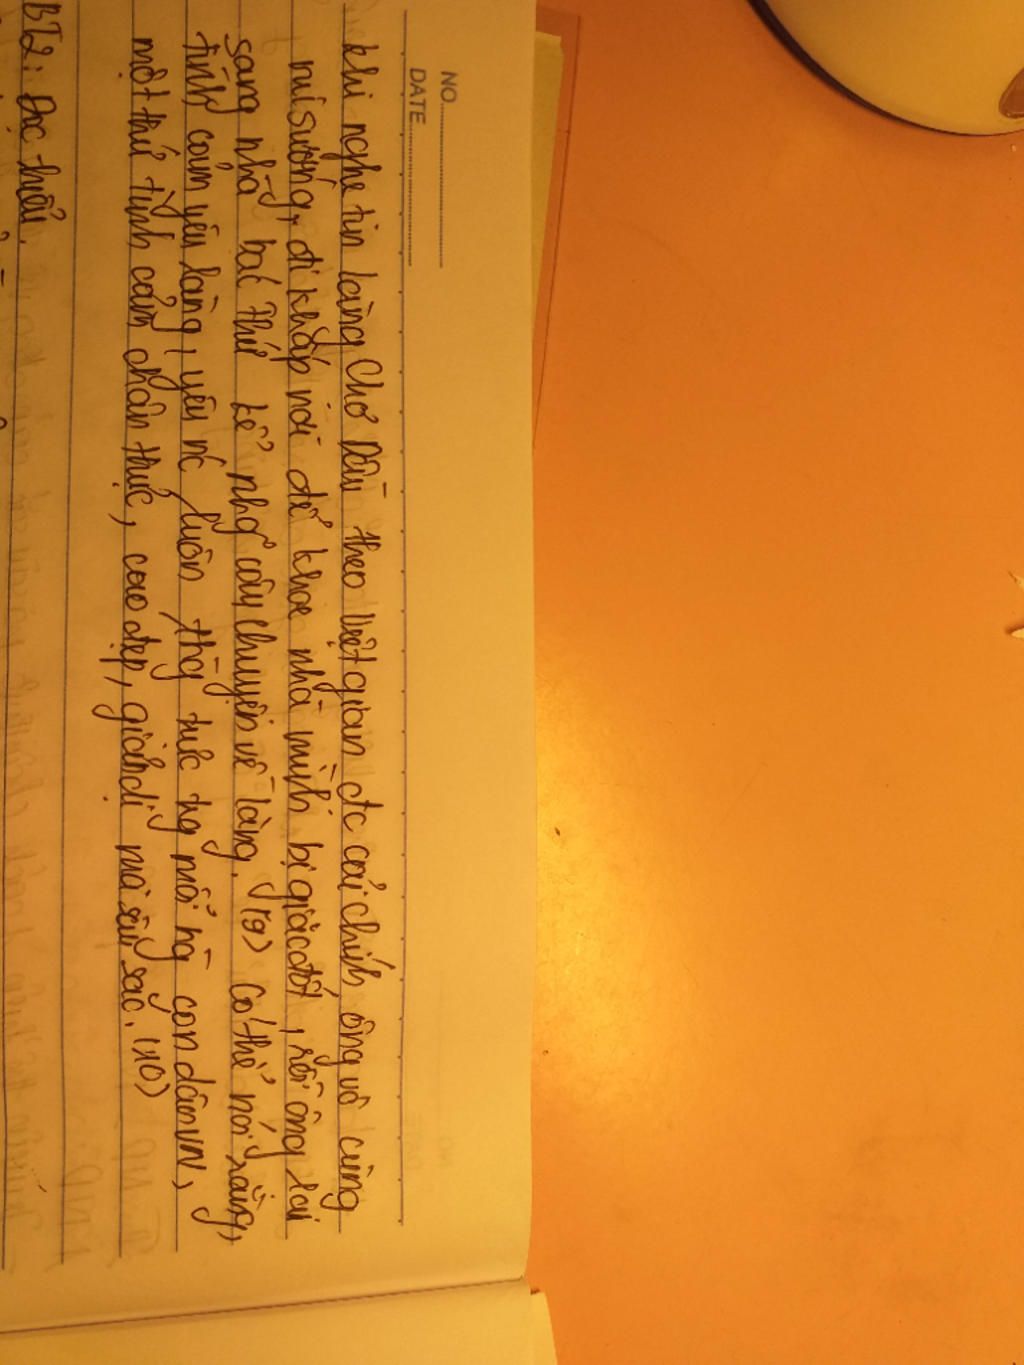 NO.
DATE
khi nghe tin làng Chợ Dầu theo Việt gian đc cải chính, ông vô cùng
núi sướng, đi khắp nơi để khoe nhà mình bị giặc đốt, rồi ông lại
sang nhà bác Thứ kể nhg câu chuyện về làng. (9) Có thể nói rằng,
tình cảm yêu làng, yêu nc luôn thg trực trg mỗi ng con dân VN,
một thứ tình cảm chân thực, cao đẹp, giản dị mà sâu sắc. (10)
BT2: Đọc hiểu.